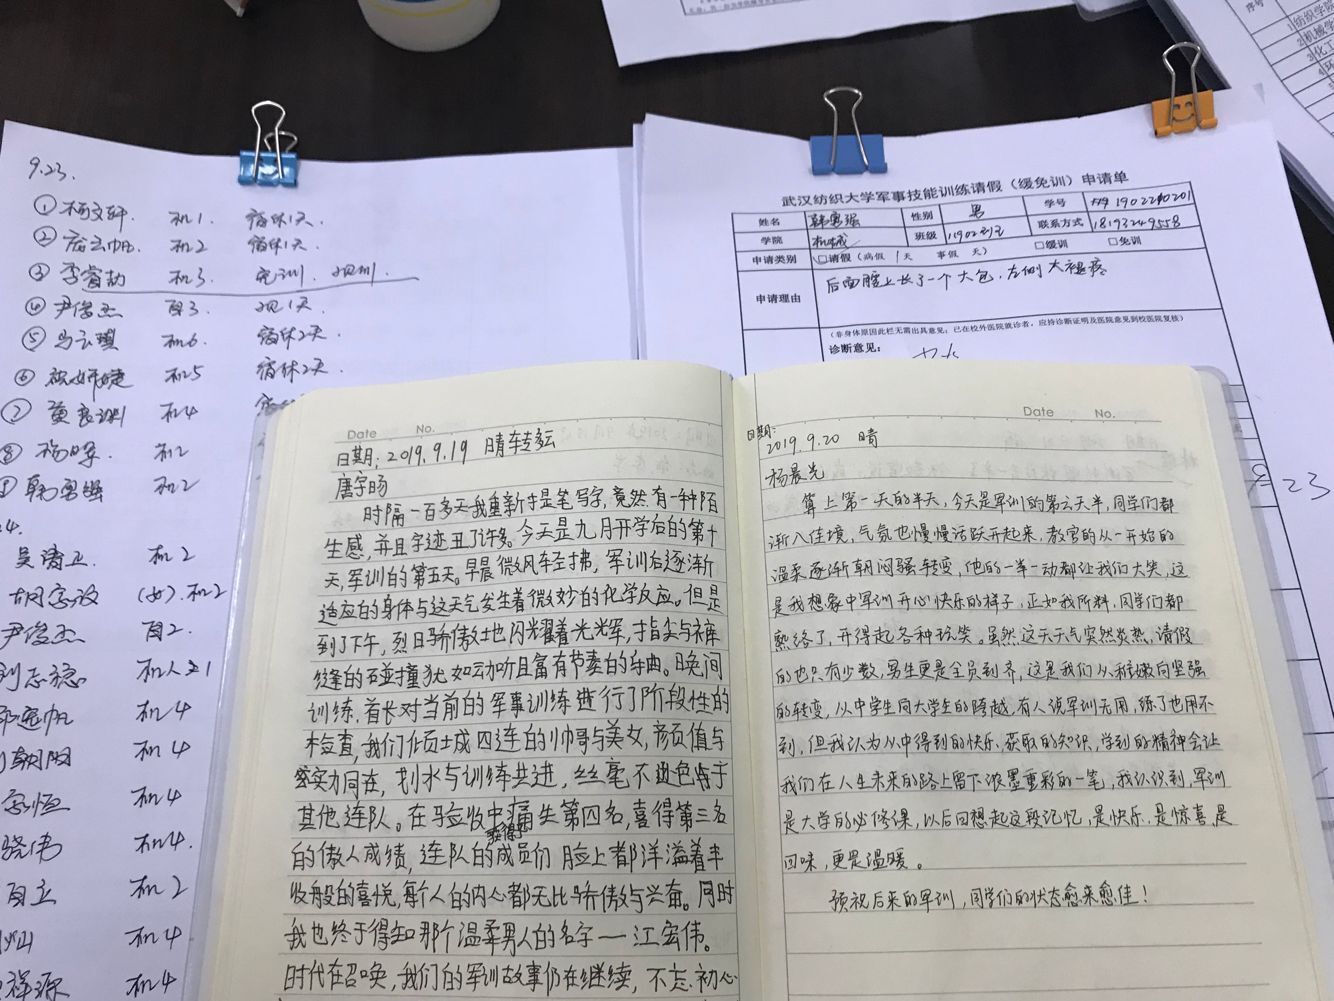 9.23.
① 杨文轩. 机1. 宿休1天.
② 机2 宿休1天.
③ 李 机3. 免训.
④ 尹俊杰 自3. 1天.
⑤ 马 机6. 宿休2天.
⑥ 机5 宿休2天.
⑦ 机4
⑧ 杨 机2
韩勇强 机2
吴 机2
胡 (女). 机2
尹俊杰 自2.
刘志 机人卓1
机4
朝阳 机4
恒 机4
晓伟 机4.
自立 机2
灿 机4
祥源 机4
武汉纺织大学军事技能训练请假（缓免训）申请单
姓名 韩勇强 性别 男 学号
学院 机械 班级 联系方式 18193249558
申请类别 □请假（病假 1天 事假 天） □缓训 □免训
申请理由 后面腚上长了一个大包，左侧大腿疼
（非身体原因此栏无需出具意见；已在校外医院就诊者，应持诊断证明及医院意见到校医院复核）
诊断意见：
9.23
序号
1 纺织学院
2 机械学
3 化工
4 环
Date No.
日期：2019.9.19 晴转多云
唐宇旸
时隔一百多天我重新才提笔写字，竟然有一种陌
生感，并且字迹丑了许多。今天是九月开学后的第十
天，军训的第五天。早晨微风轻拂，军训后逐渐
适应的身体与这天气发生着微妙的化学反应。但是
到了下午，烈日骄傲地闪耀着光辉，指尖与裤
缝的碰撞犹如动听且富有节奏的舞曲。晚间
训练，首长对当前的军事训练进行了阶段性的
检查，我们 四连的帅哥与美女，颜值与
实力同在，划水与训练共进，丝毫不逊色于
其他连队。在验收中痛失第四名，喜得第三名
的傲人成绩，连队的成员们脸上都洋溢着丰
收般的喜悦，每个人的内心都无比骄傲与兴奋。同时
我也终于得知那个温柔男人的名字——江宏伟。
时代在召唤，我们的军训故事仍在继续，不忘初心
Date No.
日期：
2019.9.20 晴
杨晨光
算上第一天的半天，今天是军训的第六天半，同学们都
渐入佳境，气氛也慢慢活跃开起来，教官的从一开始的
温柔逐渐朝闷骚转变，他的一举一动都让我们大笑，这
是我想象中军训开心快乐的样子，正如我所料，同学们都
熟络了，开得起各种玩笑。虽然这天天气突然炎热，请假
的也只有少数，男生更是全员到齐，这是我们从稚嫩向坚强
的转变，从中学生向大学生的跨越，有人说军训无用，练了也用不
到，但我认为从中得到的快乐，获取的知识，学到的精神会让
我们在人生未来的路上留下浓墨重彩的一笔，我认识到，军训
是大学的必修课，以后回想起这段记忆，是快乐，是惊喜，是
回味，更是温暖。
预祝后来的军训，同学们的状态愈来愈佳！